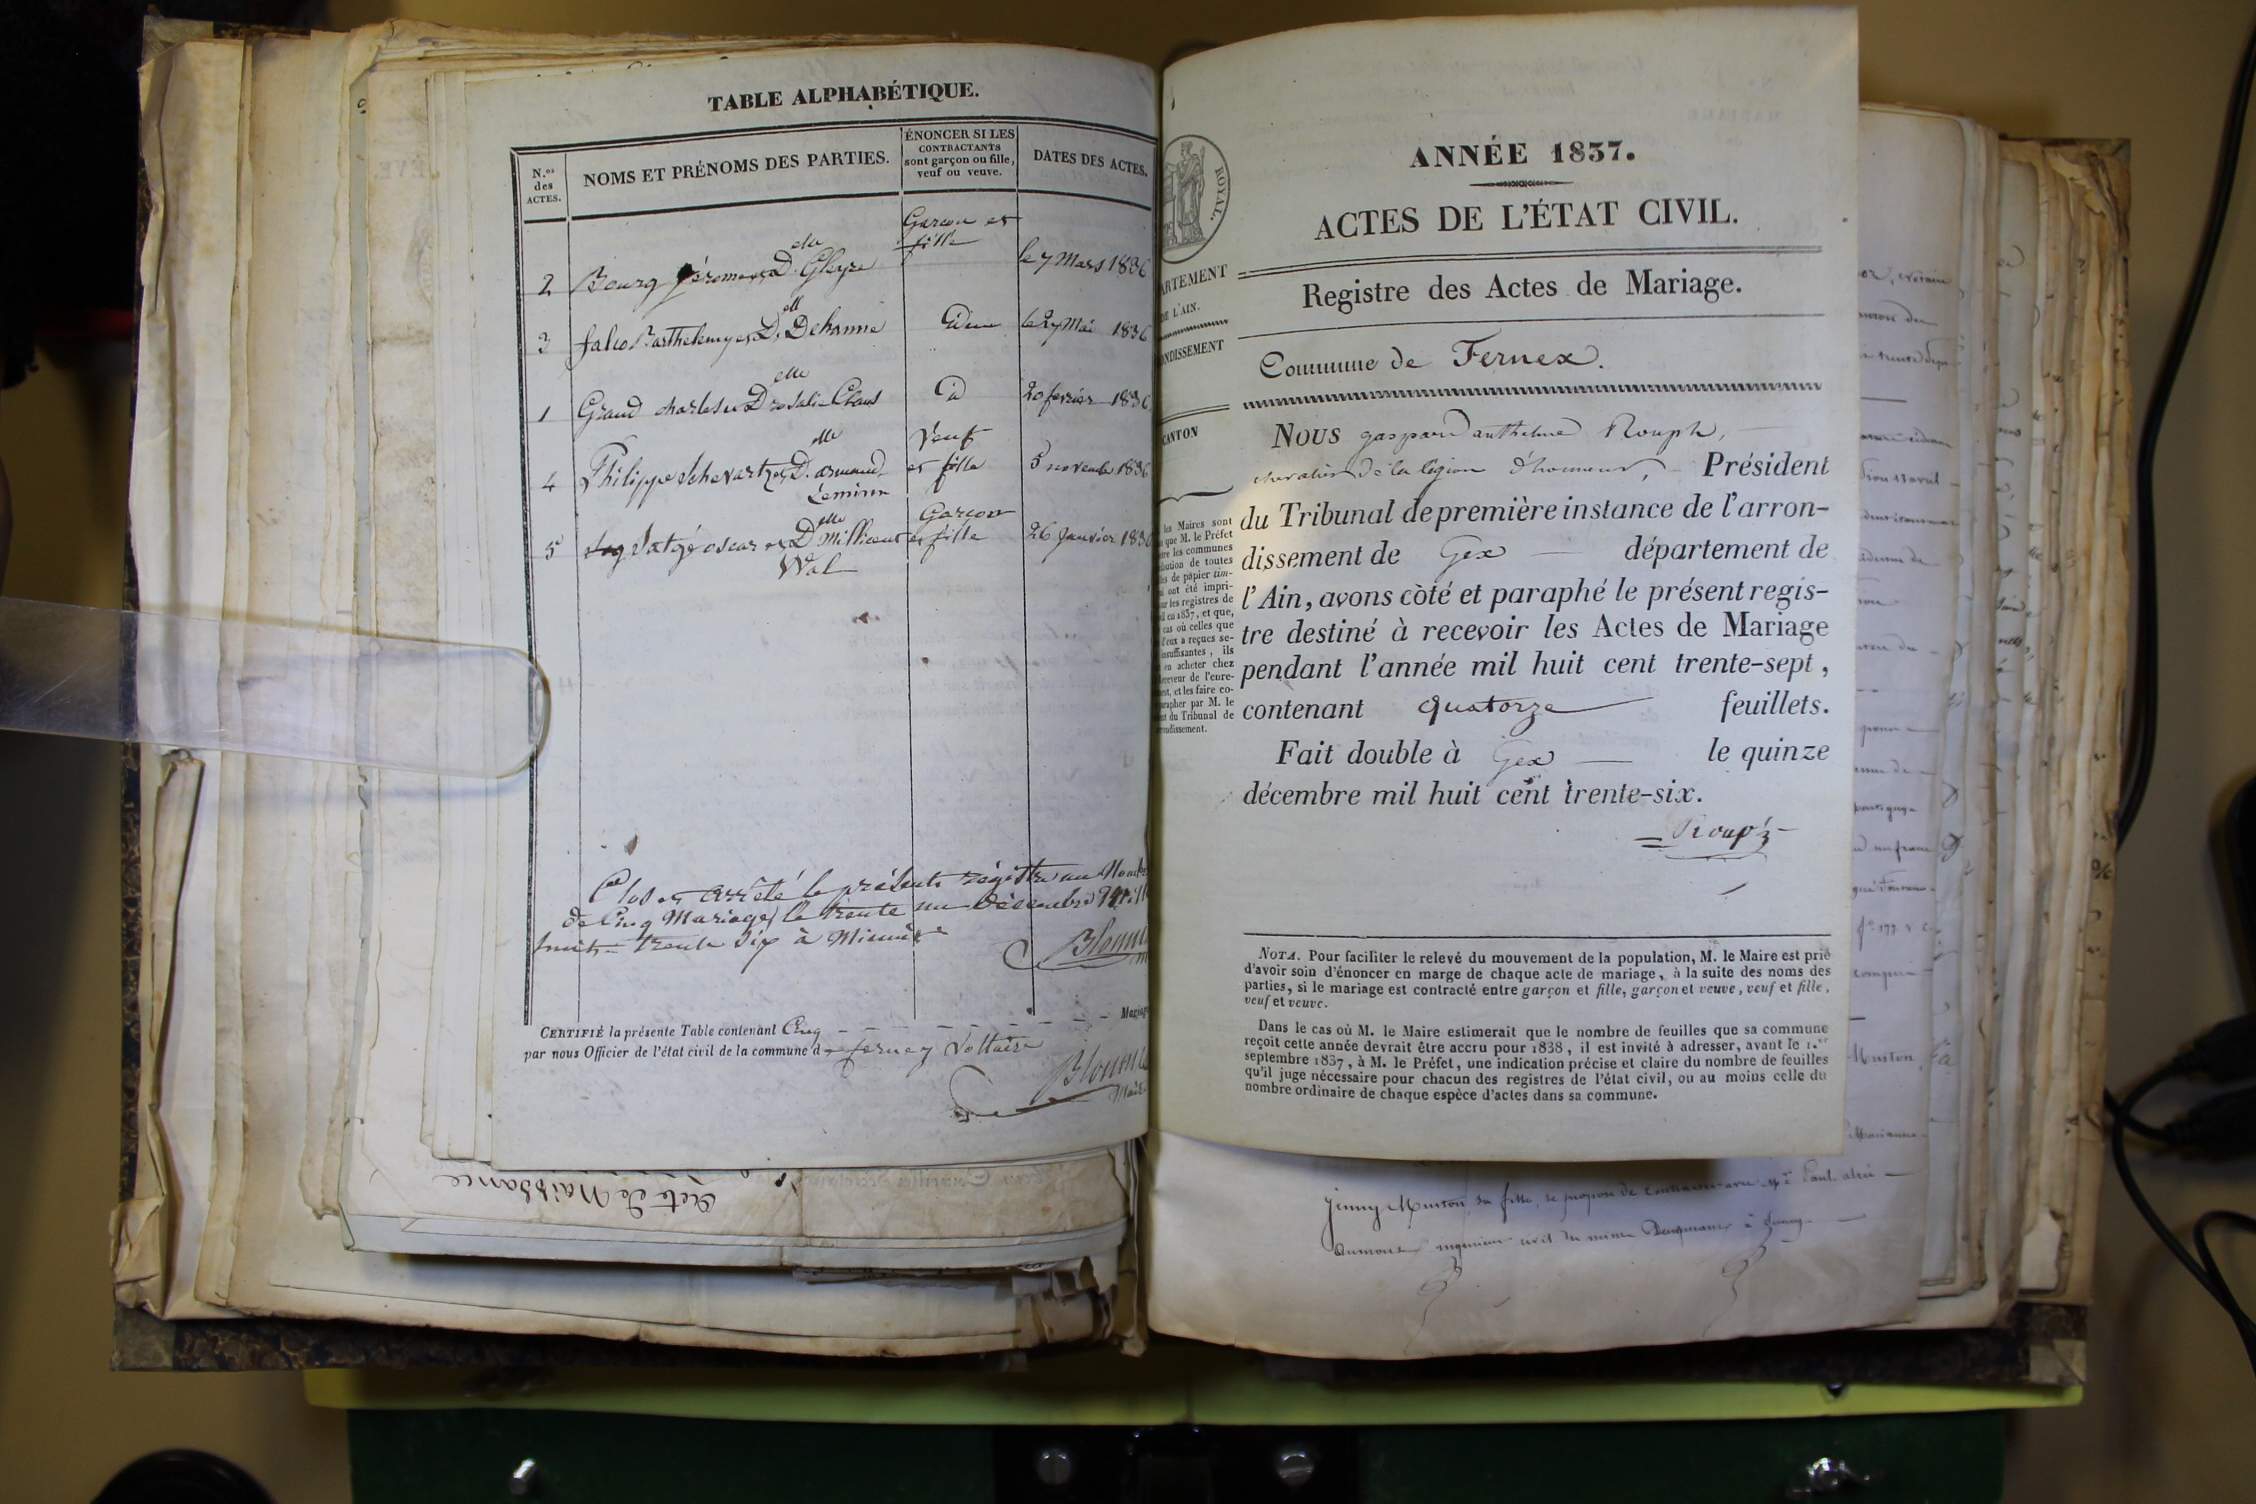 TABLE ALPHABÉTIQUE.
N.os des ACTES.
NOMS ET PRÉNOMS DES PARTIES.
ÉNONCER SI LES
CONTRACTANTS
sont garçon ou fille,
veuf ou veuve.
DATES DES ACTES.
2 Bourg Jérome et D.elle Gleyre Garçon et fille le 7 Mars 1836
3 falco Barthelemy et D.elle Dehanne Idem le 27 Mai 1836
1 Grand charles et D.elle rosalie Claus Id 20 fevrier 1836
4 Philippe Schevartz et D.elle armand Veuf et fille 5 novembre 1836
5 Satgé oscar et D.elle Millicent Wal Garçon et fille 26 Janvier 1836
Clos et arrêté le présent registre au Nombre
de Cinq Mariages le trente un décembre Mil
huit trente Six à Minuit
CERTIFIÉ la présente Table contenant Cinq Mariages
par nous Officier de l'état civil de la commune d fernex Voltaire
Maire
ROYAL.
ARTEMENT
DE L'AIN.
ONDISSEMENT
CANTON
les Maires sont
que M. le Préfet
les communes
bution de toutes
de papier tim-
ont été impri-
les registres de
en 1837, et que,
cas où celles que
eux a reçues se-
insuffisantes, ils
en acheter chez
eceveur de l'enre-
ent, et les faire co-
arapher par M. le
du Tribunal de
ondissement.
ANNÉE 1837.
ACTES DE L'ÉTAT CIVIL.
Registre des Actes de Mariage.
Commune de Fernex.
NOUS gaspard anthelme Rouph,
chevalier de la légion d'honneur, Président
du Tribunal de première instance de l'arron-
dissement de Gex département de
l'Ain, avons côté et paraphé le présent regis-
tre destiné à recevoir les Actes de Mariage
pendant l'année mil huit cent trente-sept,
contenant quatorze feuillets.
Fait double à Gex le quinze
décembre mil huit cent trente-six.
Rouph
NOTA. Pour faciliter le relevé du mouvement de la population, M. le Maire est prié
d'avoir soin d'énoncer en marge de chaque acte de mariage, à la suite des noms des
parties, si le mariage est contracté entre garçon et fille, garçon et veuve, veuf et fille,
veuf et veuve.
Dans le cas où M. le Maire estimerait que le nombre de feuilles que sa commune
reçoit cette année devrait être accru pour 1838, il est invité à adresser, avant le 1.er
septembre 1837, à M. le Préfet, une indication précise et claire du nombre de feuilles
qu'il juge nécessaire pour chacun des registres de l'état civil, ou au moins celle du
nombre ordinaire de chaque espèce d'actes dans sa commune.
Acte de Naissance
Jenny Muston sa fille, se propose de contracter avec Mr Paul
ingenieur civil des mines